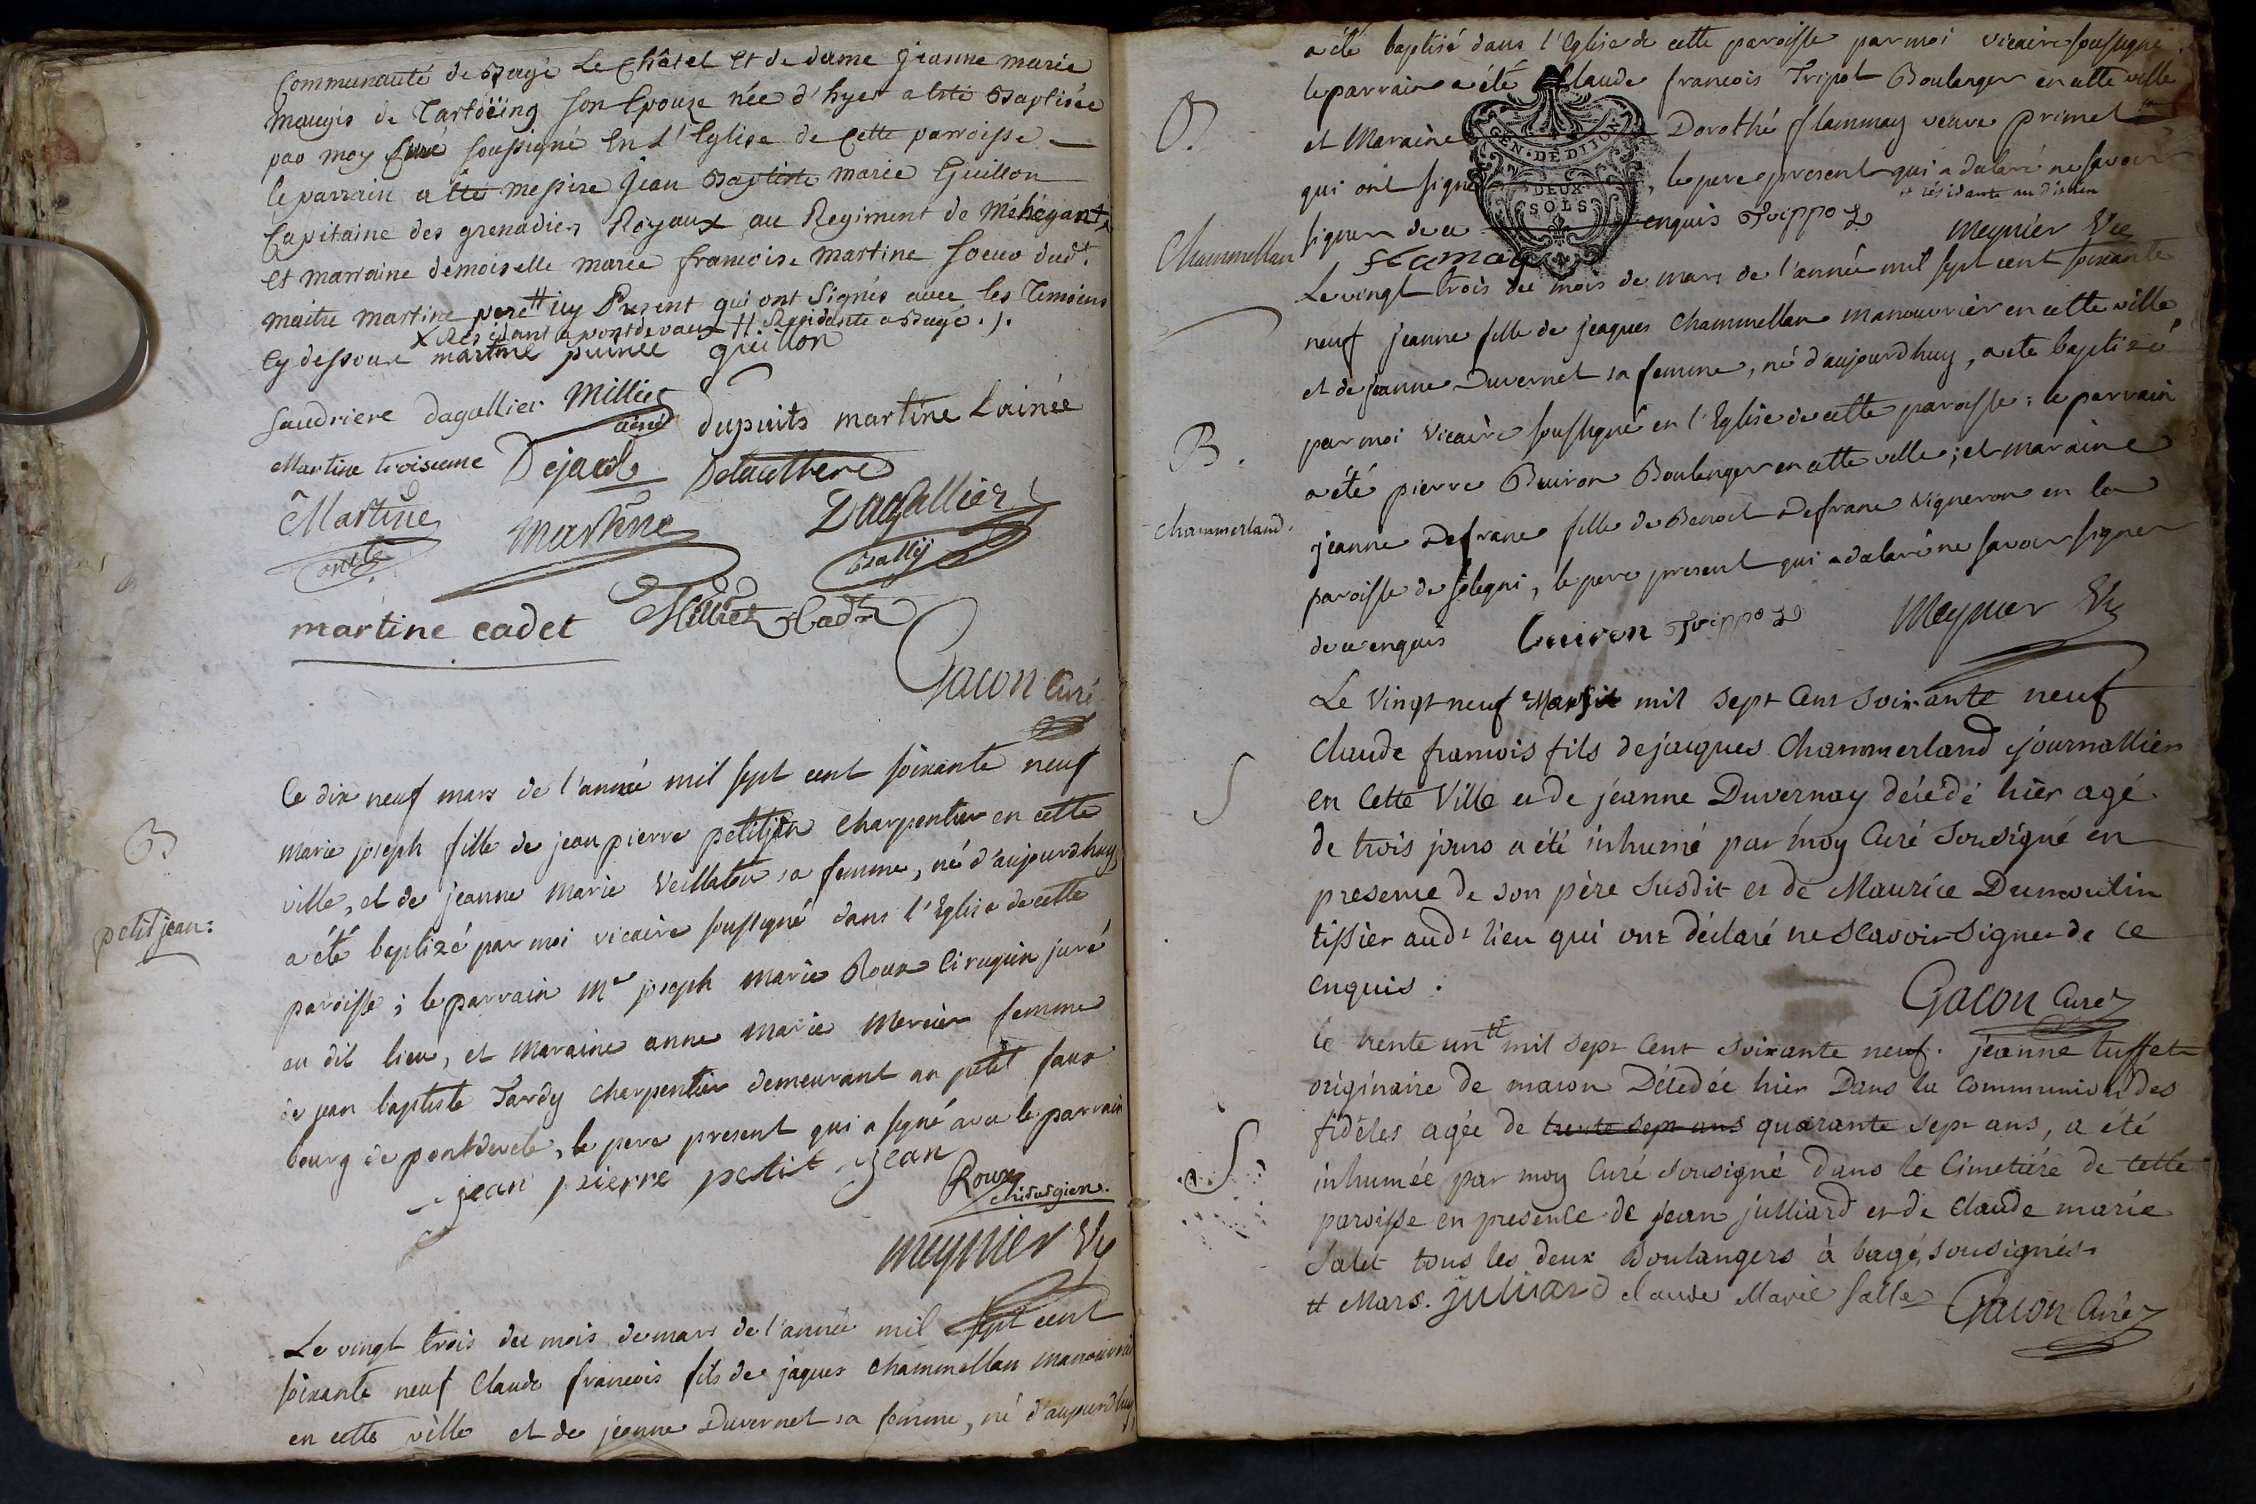 Communauté de Bagé Le Châtel et de dame jeanne marie
maugis de Tartöeing son Epouse née d'hyer a été Baptisée
par moy Curé soussigné En L'Eglise de Cette parroisse
le parrain a été messire jean Baptiste marie Guillon
Capitaine des grenadiers Royaux au Regiment de Méhegant X
et marraine demoiselle marie francoise martine soeur dudt.
maitre martine pere # icy Present qui ont signés avec les Temoins
X Residant a pontdevaux # Residante a Bagé ./.
Cy dessoux martine puinée guillon
Saudriere dagallier Milliet ainé dupuits martine Lainée
Martine troisieme Dejacob
Martine martine Dagallier
Bally
martine cadet Milliet Cadt
Gacon Curé
B
petitjean:
Ce dix neuf mars de l'année mil sept cent soixante neuf
marie joseph fille de jean pierre petitjean charpentier en cette
ville, et de jeanne marie sa femme, né d'aujourdhuy,
a été baptizé par moi vicaire soussigné dans l'Eglise de cette
paroisse; le parrain Mr joseph marie Roux Cirugien juré
au dit lieu, et maraine anne marie Mercier femme
de jean baptiste Tardy charpentier demeurant au petit faux
bourg de pontdevele, le pere present qui a signé avec le parrain
jean pierre petit jean Roux
chirurgien.
meynier Vic
Le vingt trois du mois de mars de l'année mil sept cent
soixante neuf Claude francois fils de jaques chammellan manouvrier
en cette ville et de jeanne Duvernet sa femme, né d'aujourdhuy
a été baptisé dans l'Eglise de cette paroisse par moi vicaire soussigné
le parrain a été Claude francois Tripot Boulanger en cette ville
B.
et Maraine Dorothé flammay veuve primet
qui ont signé, le pere present qui a declaré ne savoir
GEN. DE DIJON
DEUX
SOLS
# résidante au
Chammellan
signer de ce enquis Trippoz meynier Vic
flamay
Le vingt trois du mois de mars de l'année mil sept cent soixante
neuf jeanne fille de jeaques chammellan manouvrier en cette ville
et de jeanne Duvernet sa femme, né d'aujourdhuy, a eté baptizé
B.
par moi vicaire soussigné en l'Eglise de cette paroisse; le parrain
a été pierre Buiron Boulanger en cette ville; et maraine
chammerland.
jeanne Defranc fille de Benoit Defranc vigneron en la
paroisse de sologni, le pere present qui a declaré ne savoir signer
de ce enquis buiron Trippoz Meynier Vic
Le Vingt neuf Mars mil sept Cent soixante neuf
Claude francois fils de jacques Chammerland journallier
S
en Cette Ville et de jéanne Duvernay décédé hier agé
de trois jours a été inhumé par moy Curé sousigné en
presence de son père susdit et de Maurice Dumoulin
tissier audt lieu qui ont déclaré ne scavoir signer de ce
enquis.
Gacon Curé
le trente un # mil sept Cent soixante neuf. jeanne tuffet
originaire de macon Décédée hier Dans la communion des
S
fidèles agée de trente sept ans quarante sept ans, a été
inhumée par moy Curé sousigné dans le Cimetiére de cette
paroisse en presence de jean julliard et de claude marie
Salet tous les deux Boulangers à bagé, sousignés
# Mars. julliard claude Marie salle Gacon Curé